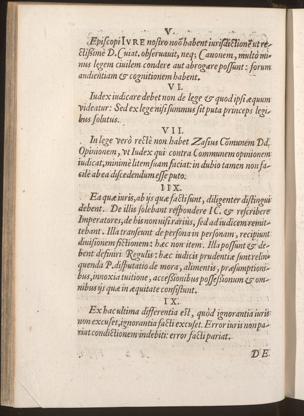 V.
Episcopi IVRE nostro nõ habent iurisdictionẽ ut re-
ctissimè D. Cuiat. obseruauit, neq; Canonem, multò mi-
nus legem ciuilem condere aut abrogare possunt: forum
audientiam & cognitionem habent.
VI.
Iudex iudicare debet non de lege & quod ipsi æquum
videatur: Sed ex lege nisi summus sit puta princeps legi-
bus solutus.
VII.
In lege verò rectè non habet Zasius Cõmunem Dd.
Opinionem, vt Iudex qui contra Communem opinionem
iudicat, minimè litem suam faciat: in dubio tamen non fa-
cilè ab ea discedendum esse puto.
IIX.
Ea quæ iuris, ab ijs quæ facti sunt, diligenter distingui
debent. De illis solebant respondere IC. & rescribere
Imperatores, de his non nisi rarius, sed ad iudicem remit-
tebant. Illa transeunt de persona in personam, recipiunt
diuisionem fictionem: hæc non item. Illa possunt & de-
bent definiri Regulis: hæc iudicis prudentiæ sunt relin-
quenda P. disputatio de mora, alimentis, præsumptioni-
bus, innoxia tuitione, accessionibus possessionum & om-
nibus ijs quæ in æquitate consistunt.
IX.
Ex hac ultima differentia est, quòd ignorantia iuris
non excuset, ignorantia facti excuset. Error iuris non pa-
riat condictionem indebiti: error facti pariat.
DE